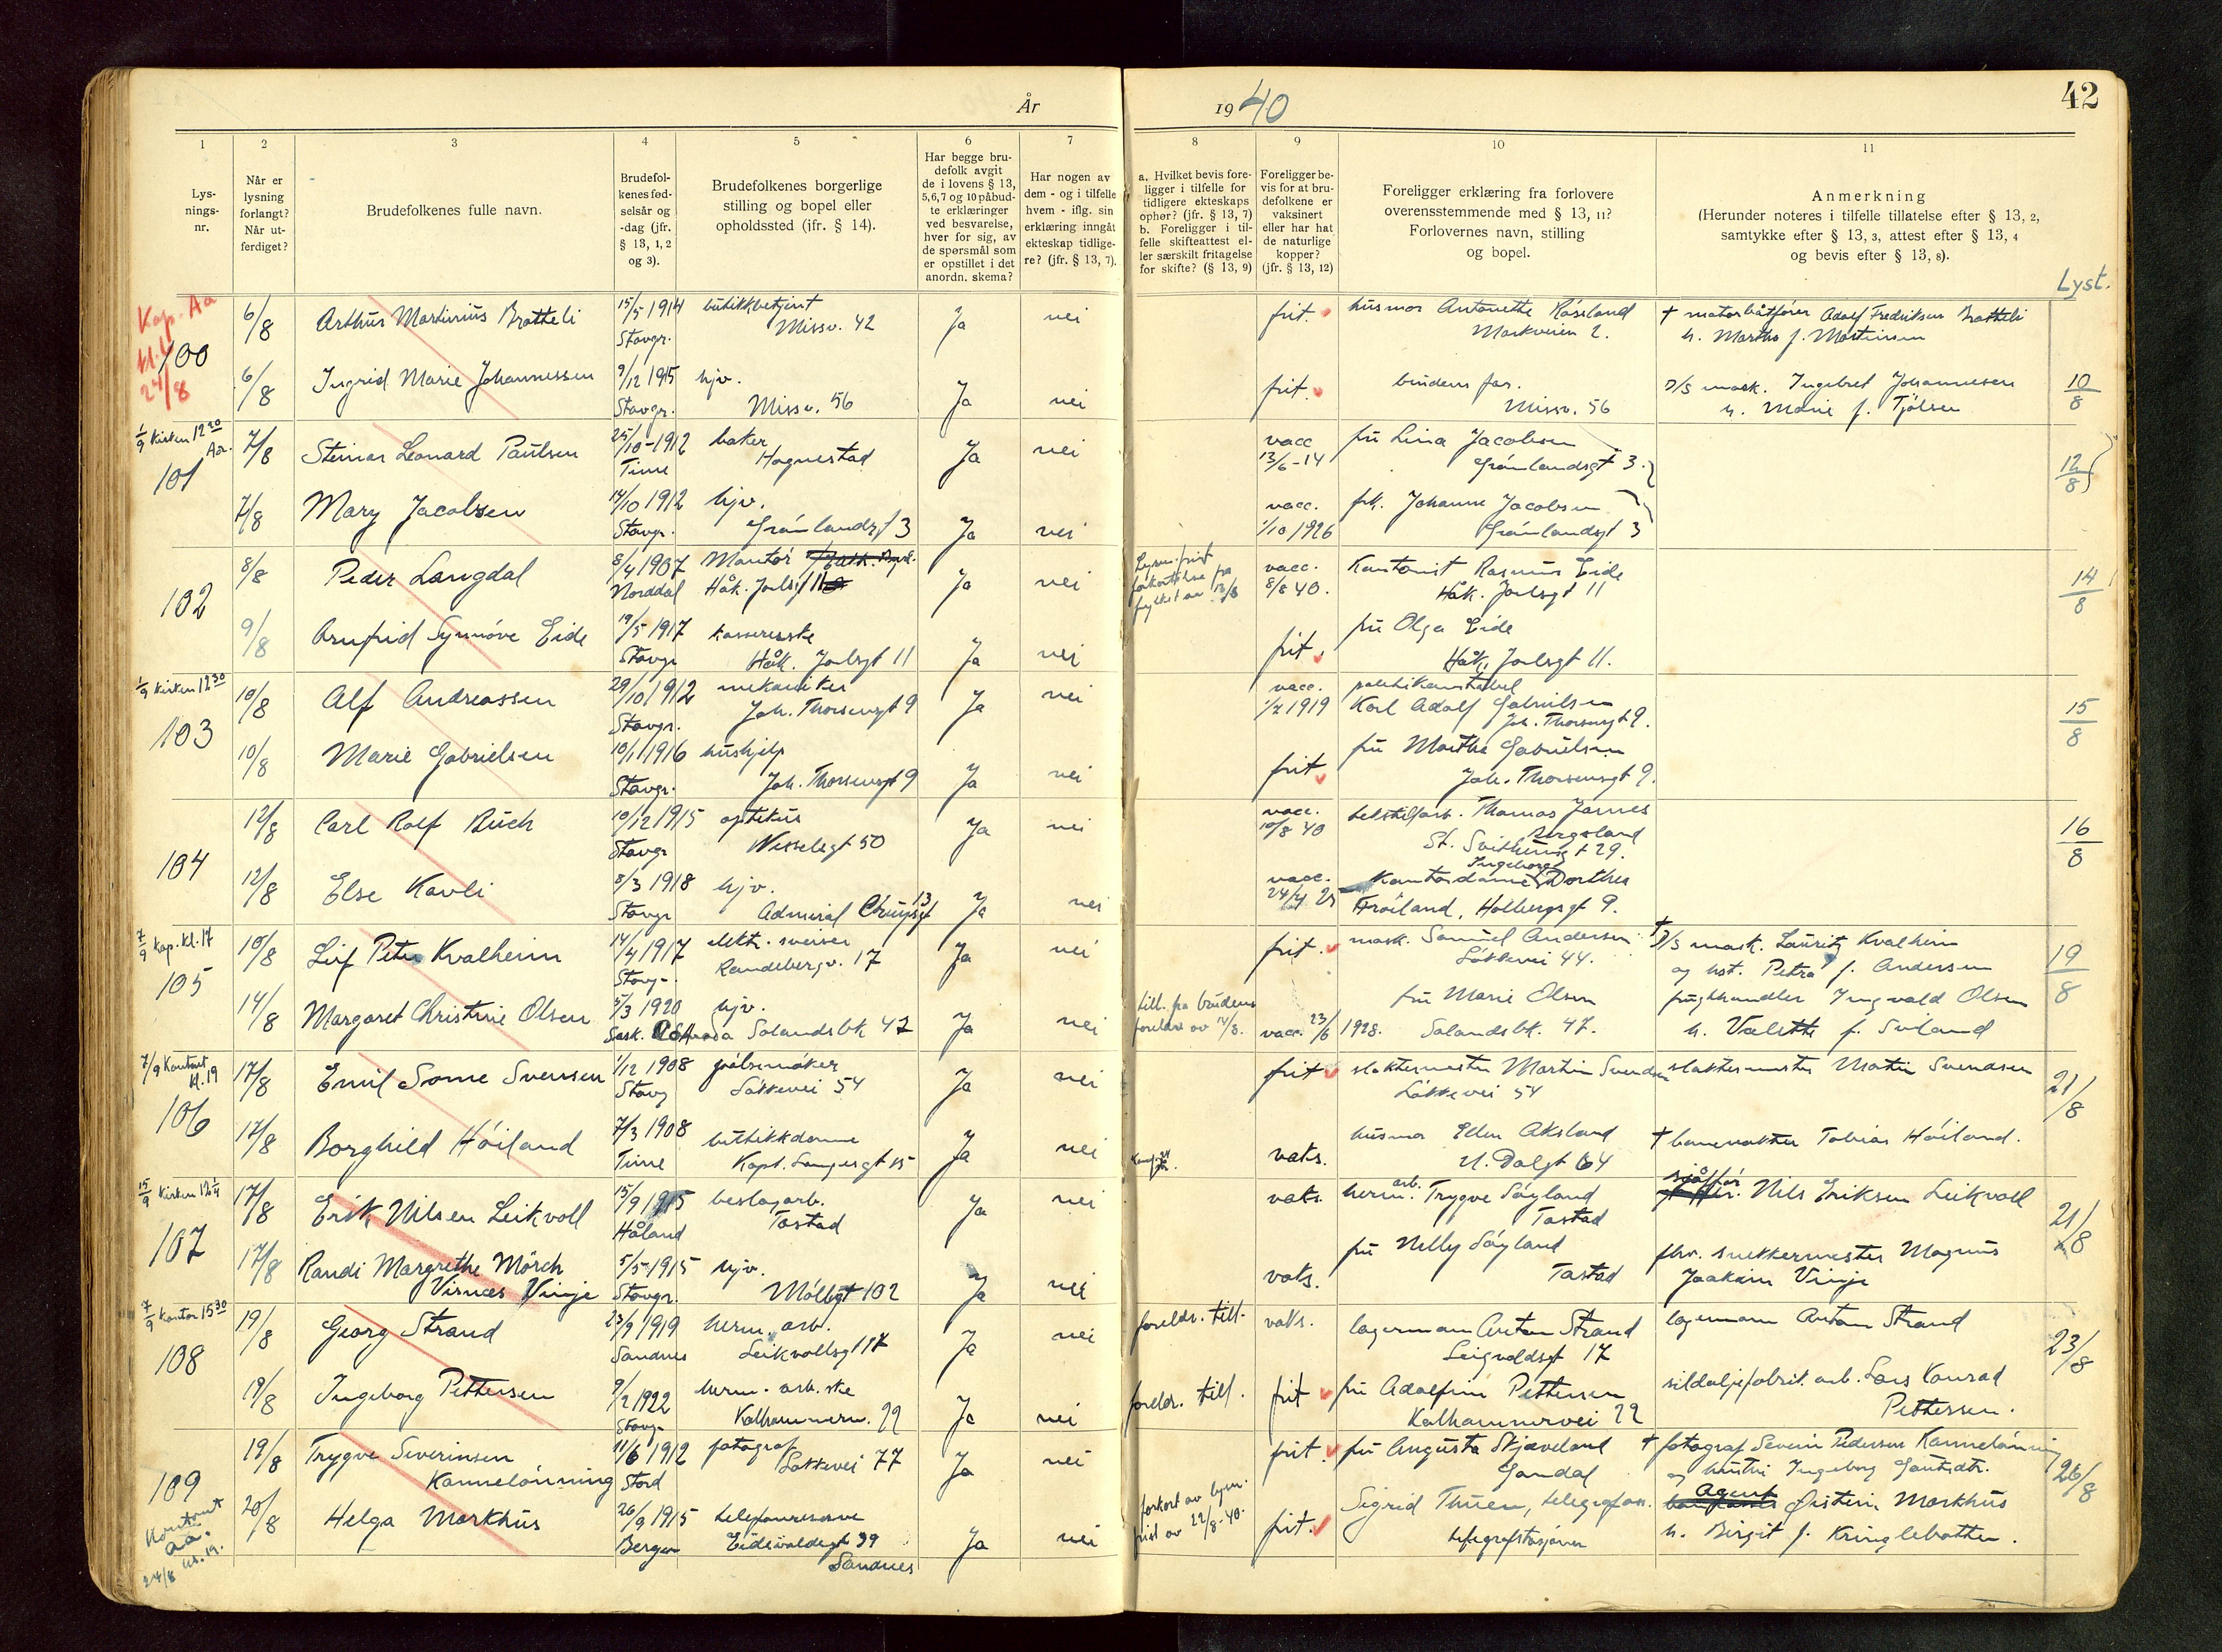 År
1940
42
1
Lys-
nings-
nr.
2
Når er
lysning
forlangt?
Når ut-
ferdiget?
3
Brudefolkenes fulle navn.
4
Brudefol-
kenes fød-
selsår og
-dag (jfr.
§ 13, 1, 2
og 3).
5
Brudefolkenes borgerlige
stilling og bopel eller
opholdssted (jfr. § 14).
6
Har begge bru-
defolk avgit
de i lovens § 13,
5,6,7 og 10 påbud-
te erklæringer
ved besvarelse,
hver for sig, av
de spørsmål som
er opstillet i det
anordn. skema?
7
Har nogen av
dem - og i tilfelle
hvem - iflg. sin
erklæring inngåt
ekteskap tidlige-
re? (jfr. § 13, 7).
8
a. Hvilket bevis fore-
ligger i tilfelle for
tidligere ekteskaps
ophør? (jfr. § 13, 7)
b. Foreligger i til-
felle skifteattest el-
ler særskilt fritagelse
for skifte? (§ 13, 9)
9
Foreligger be-
vis for at bru-
defolkene er
vaksinert
eller har hat
de naturlige
kopper?
(jfr. § 13, 12)
10
Foreligger erklæring fra forlovere
overensstemmende med § 13, 11?
Forlovernes navn, stilling
og bopel.
11
Anmerkning
(Herunder noteres i tilfelle tillatelse efter § 13, 2,
samtykke efter § 13, 3, attest efter § 13, 4
og bevis efter § 13, 8).
Lyst.
Kap. Aa
24/8
100
6/8 Arthur Martinius Bratteli 15/5 1914 butikkbetjent
Stavgr. Missv. 42 Ja nei frit. husmor Antonette Røssland
Markveien 2.
† motorbåtfører Adolf Fredriksen Bratteli
h. Martha f. Mortensen
6/8 Ingrid Marie Johannessen 9/12 1915 hjv.
Stavgr. Missv. 56 Ja nei frit. brudens far.
Missv. 56
D/S mask. Ingebret Johannessen
h. Marie f. Tjölsen
10/8
1/9 Kirken 12 30 Aa.
101
7/8 Steinar Leonard Paulsen 25/10-1912 baker
Time Hognestad Ja nei vacc 13/6-14 fru Lina Jacobsen
Grönlandsgt 3.
12/8
7/8 Mary Jacobsen 14/10 1912 hjv.
Stavgr. Grönlandsgt 3 Ja nei vacc. 1/10 1926 frk. Johanne Jacobsen
Grönlandsgt 3
102
8/8 Peder Langdal 8/4 1907 Montør
Norddal Håk. Jarlsgt 11 Ja nei vacc. 8/8 40. Kontorist Rasmus Eide
Håk. Jarlsgt 11
14/8
9/8 Arnfrid Synnöve Eide 19/5 1917 kassererske
Stavgr Håk. Jarlsgt 11 Ja nei frit. fru Olga Eide
Håk. Jarlsgt 11.
1/9 Kirken 12 30
103
10/8 Alf Andreassen 29/10 1912 mekaniker
Stavgr. Joh. Thorsensgt 9 Ja nei vacc. 1/7 1919 politikonstabel
Karl Adolf Gabrielsen
Joh. Thorsensgt 9.
15/8
10/8 Marie Gabrielsen 10/1 1916 hushjelp
Stavgr. Joh. Thorsensgt 9 Ja nei frit fru Marthe Gabrielsen
Joh. Thorsensgt 9.
104
12/8 Carl Rolf Buch 10/12 1915 optikus
Stavgr Wesselsgt 50 Ja nei vacc. 10/8 40 tekstilarb. Thomas James
Bergsland
St. Svithunsgt 29.
16/8
12/8 Else Kavli 8/3 1918 hjv.
Stavgr Admiral Cruysgt 13 Ja nei vacc. 24/4 25 Kontordame Ingeborg Dorthea
Fröiland, Holbergsgt 9.
7/9 Kap. Kl. 17
105
10/8 Leif Peter Kvalheim 14/4 1917 elektr. sveiser
Stavgr. Randebergv. 17 Ja nei frit. mask. Samuel Andersen
Løkkevei 44.
† D/S mask. Lauritz Kvalheim
og hst. Petra f. Andersen
19/8
14/8 Margaret Christine Olsen 5/3 1920 hjv.
Sask. Canada Solandsbk 47 Ja nei till. fra brudens
foreldre av
vacc. 23/6 1928. fru Marie Olsen
Solandsbk. 47.
frugthandler Ingvald Olsen
h. Valette f. Sviland
7/9 Kontoret kl. 19
106
17/8 Emil Some Svensen 1/12 1908 pølsemaker
Stavg Løkkevei 54 Ja nei frit slaktermester Martin Svendsen
Løkkevei 54
slaktermester Martin Svendsen
21/8
17/8 Borghild Höiland 7/3 1908 butikkdame
Time Kapt. Langesgt 15 Ja nei vaks. husmor Ellen Aksland
N. Dalgt 64
† banevokter Tobias Höiland.
15/9 Kirken 12 1/4
107
17/8 Erik Nilsen Leikvoll 15/9 1915 beslagarb.
Håland Tastad Ja nei vaks. herm. arb. Trygve Söyland
Tastad
sjåffør Nils Eriksen Leikvoll
21/8
17/8 Randi Margrethe Mörch
Visnæs Vinje 5/5 1915 hjv.
Stavgr. Möllegt 102 Ja nei vaks. fru Nelly Söyland
Tastad
fhv. snekkermester Magnus
Joakim Vinje
7/9 Kontor 15 30
108
19/8 Georg Strand 23/9 1919 herm. arb.
Sandnes Leikvollsgt 17 Ja nei foreldr. till. vaks. lagermann Anton Strand
Leigvoldsgt 17
lagermann Anton Strand
23/8
19/8 Ingeborg Pettersen 9/2 1922 herm. arb.ske
Stavgr Kalhammerv. 22 Ja nei foreldr. till. frit fru Adolfine Pettersen
Kalhammervei 22
sildoljefabrik. arb. Lars Konrad
Pettersen.
109
19/8 Trygve Severinsen
Kannelönning 11/6 1912 fotograf
Stord Løkkevei 77 Ja nei frit. fru Augusta Skjæveland
Gandal
† fotograf Severin Pedersen Kannelönning
og hustru Ingeborg
26/8
Kontoret
Aa.
kl. 19.
24/8
20/8 Helga Markhus 26/9 1915 telefonreserve
Bergen Eidsvoldsgt 39
Sandnes Ja nei forkort av lysn.
frist av 22/8-40.
frit. Sigrid Thuen, telegrafass.
telegrafstasjonen
Agent Øistein Markhus
h. Birgit f. Kringlebotten.